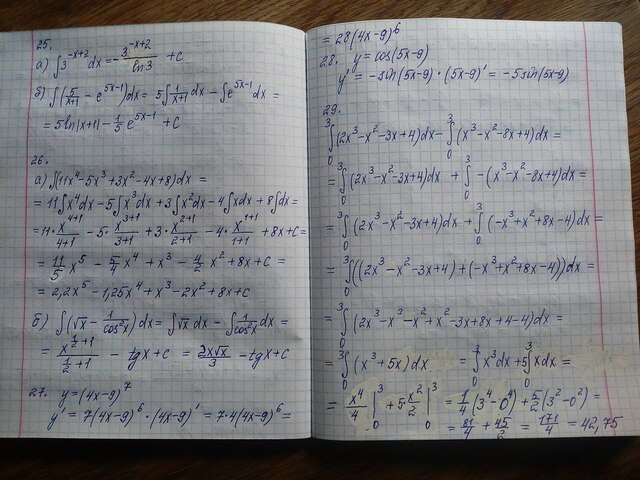 25.
а) ∫3^(-x+2) dx = - 3^(-x+2)/ln3 + c
б) ∫(5/(x+1) - e^(5x-1))dx = 5∫1/(x+1) dx - ∫e^(5x-1) dx =
= 5ln|x+1| - 1/5 e^(5x-1) + C
26.
а) ∫(11x^4 - 5x^3 + 3x^2 - 4x + 8)dx =
= 11∫x^4 dx - 5∫x^3 dx + 3∫x^2 dx - 4∫x dx + 8∫dx =
= 11· x^(4+1)/(4+1) - 5· x^(3+1)/(3+1) + 3· x^(2+1)/(2+1) - 4· x^(1+1)/(1+1) + 8x + C =
= 11/5 x^5 - 5/4 x^4 + x^3 - 4/2 x^2 + 8x + C =
= 2,2x^5 - 1,25x^4 + x^3 - 2x^2 + 8x + C
б) ∫(√x - 1/cos^2x)dx = ∫√x dx - ∫1/cos^2x dx =
= x^(1/2+1)/(1/2+1) - tgx + C = 2x√x/3 - tgx + C
27. y = (4x-9)^7
y' = 7(4x-9)^6 · (4x-9)' = 7·4(4x-9)^6 =
= 28(4x-9)^6
28. y = cos(5x-9)
y' = -sin(5x-9)·(5x-9)' = -5sin(5x-9)
29.
∫_0^3 (2x^3-x^2-3x+4)dx - ∫_0^3 (x^3-x^2-8x+4)dx =
= ∫_0^3 (2x^3-x^2-3x+4)dx + ∫_0^3 -(x^3-x^2-8x+4)dx =
= ∫_0^3 (2x^3-x^2-3x+4)dx + ∫_0^3 (-x^3+x^2+8x-4)dx =
= ∫_0^3 ((2x^3-x^2-3x+4)+(-x^3+x^2+8x-4))dx =
= ∫_0^3 (2x^3-x^3-x^2+x^2-3x+8x+4-4)dx =
= ∫_0^3 (x^3+5x)dx = ∫_0^3 x^3dx + 5∫_0^3 xdx =
= x^4/4 |_0^3 + 5 x^2/2 |_0^3 = 1/4(3^4-0^4) + 5/2(3^2-0^2) =
= 81/4 + 45/2 = 171/4 = 42,75